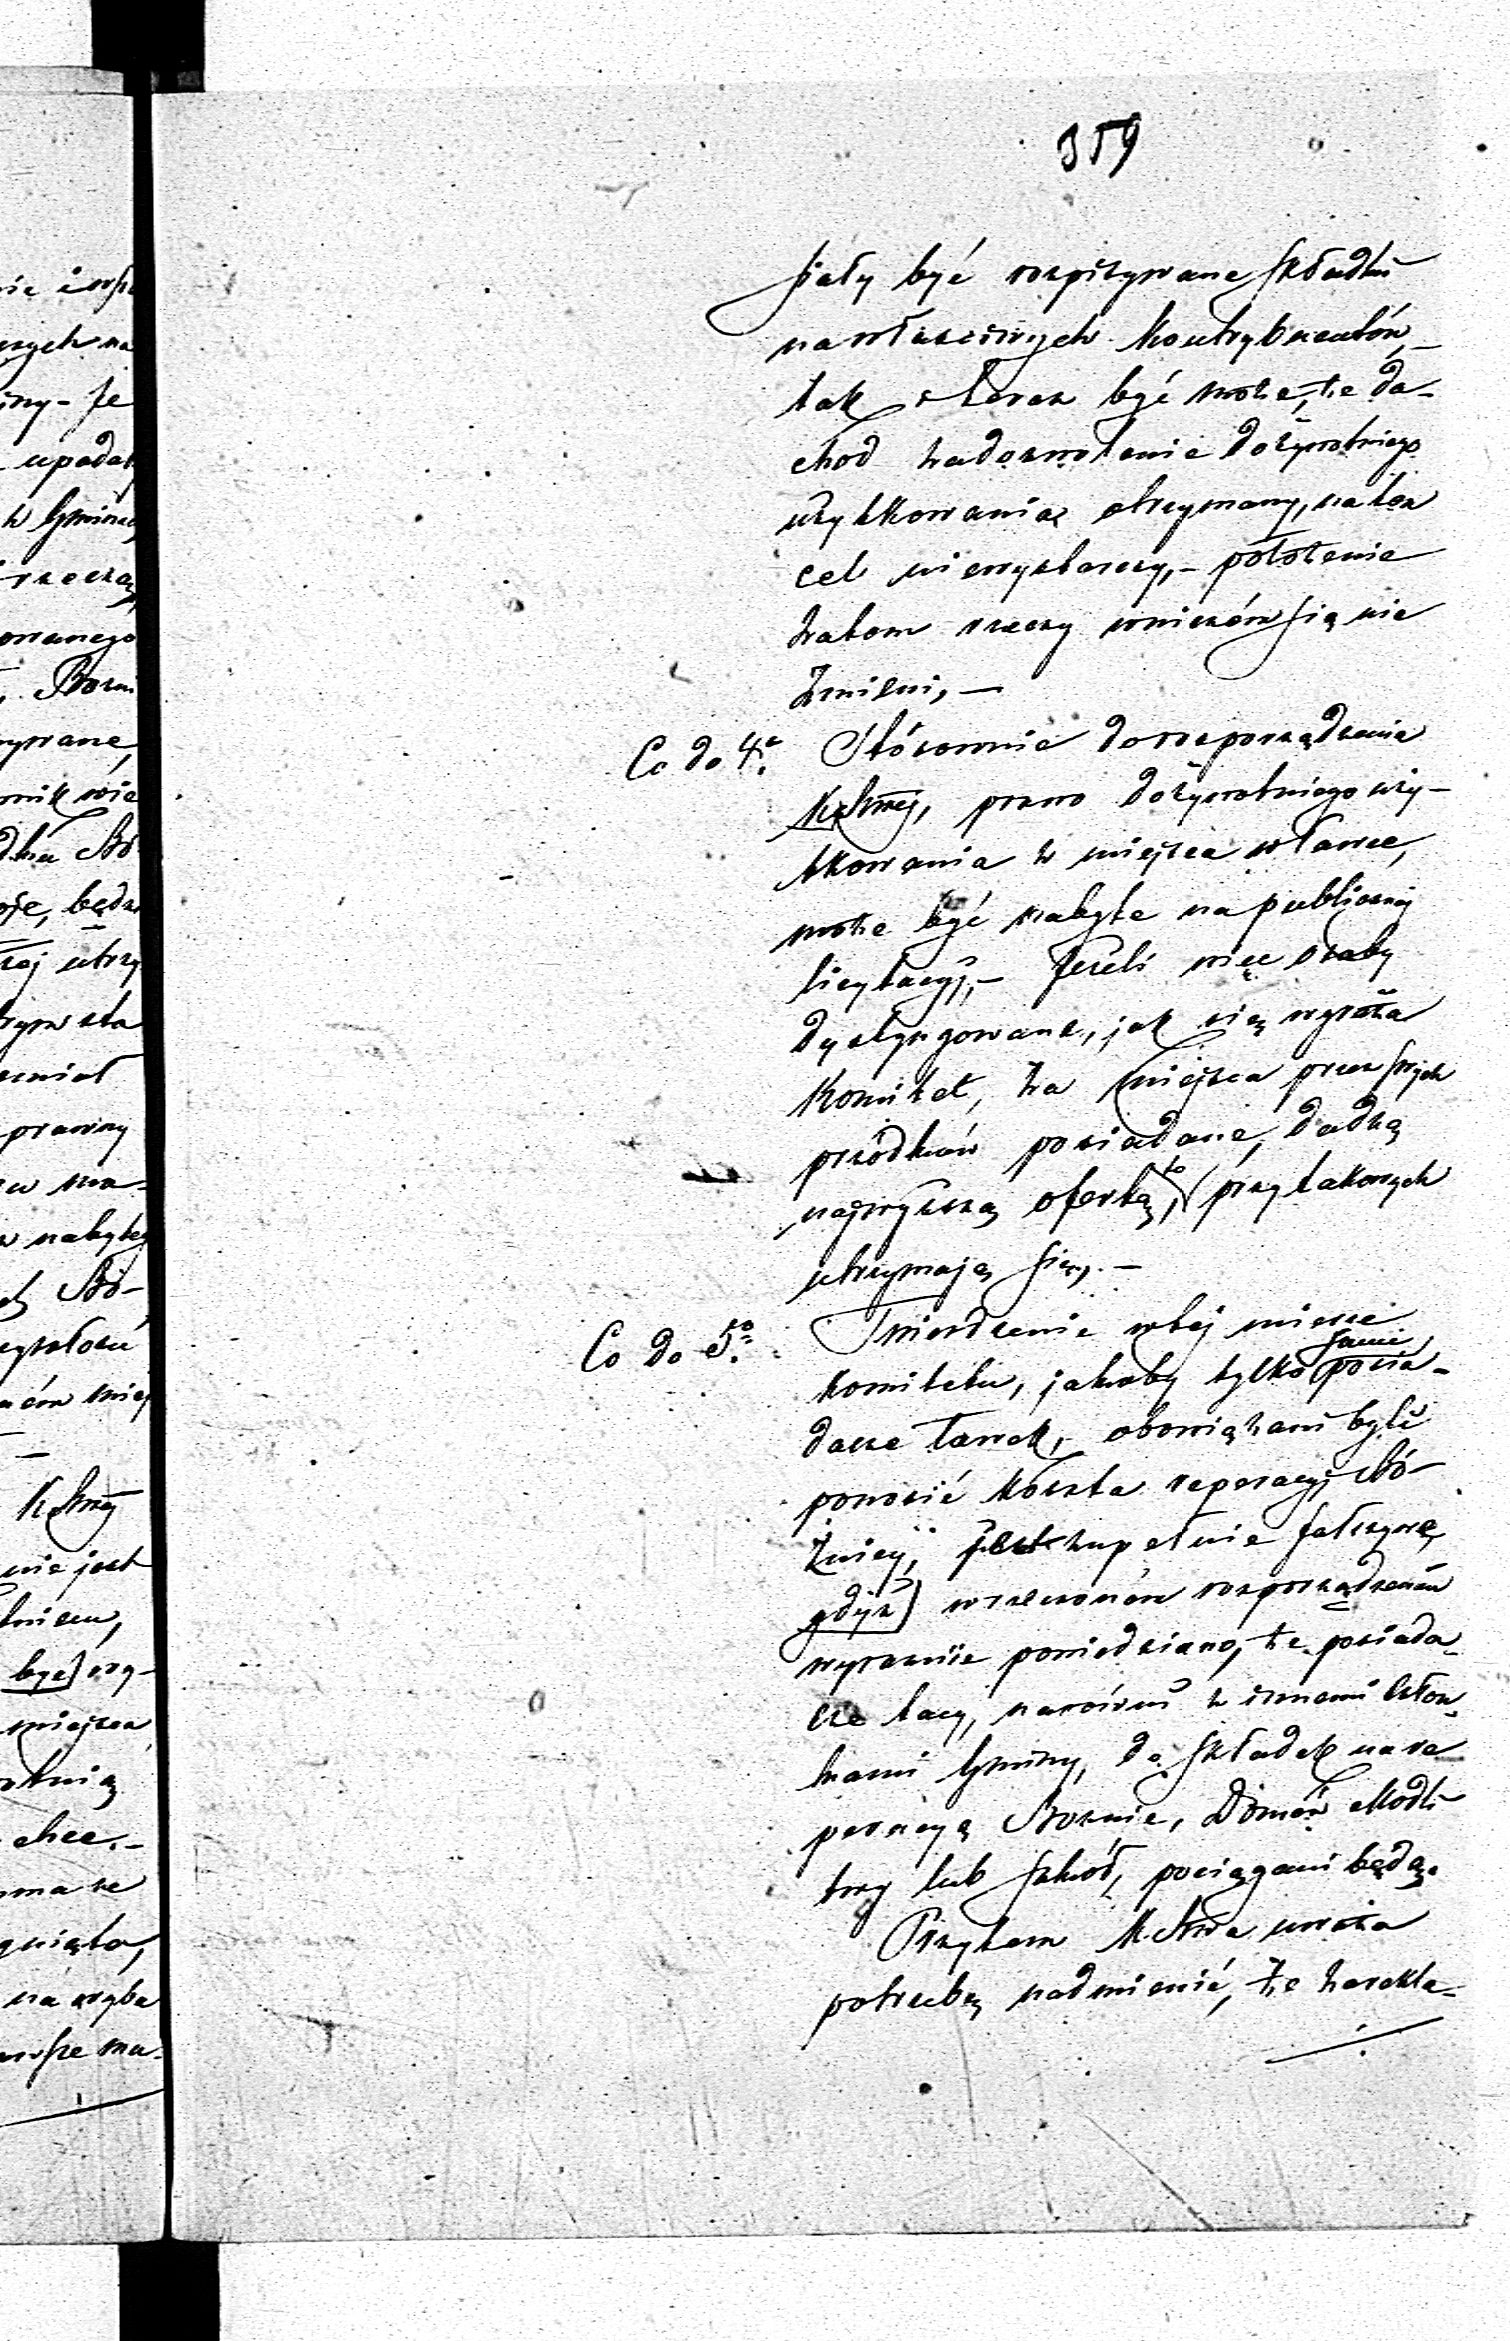 359
siały być rozpisywane składki
na właściwych kontrybuentów, —
tak i teraz być może, że do-
chod za dozwolenie dożywotniego
użytkowania otrzymany, na ten
cel niewystarczy, — położenie
zatem rzeczy wniczém się nie
zmieni, —
Co do 4º. Stósownie do rozporządzenia
K. Rz. prawo dożywotniego uży-
tkowania z miejsca w ławce,
może być nabyte na publicznej
licytacyi, — Jeżeli więc osoby
dystyngowane, jak się wyraża
Komitet, za miejsca przez swych
przódków posiadane, dadzą
najwyższą ofertę, to przy takowych
utrzymają się. —
Co do 5º. Twierdzenie w tej mierze
Komitetu, jakoby tylko sami posia-
dacze ławek, obowiązani byli
ponosić koszta reperacyi Bó-
żnicy, jest zupełnie fałszywe
gdyż wrzeczoném rozporządzeniu
wyraźnie powiedziano, że posiada-
cze tacy, narówni z innemi człon-
kami Gminy, do składek na re
peracyą Bożnic, Domów Modli
twy lub szkół, pociągani będą.
Przytem M. uważa
potrzebę nadmienić, że charakte-